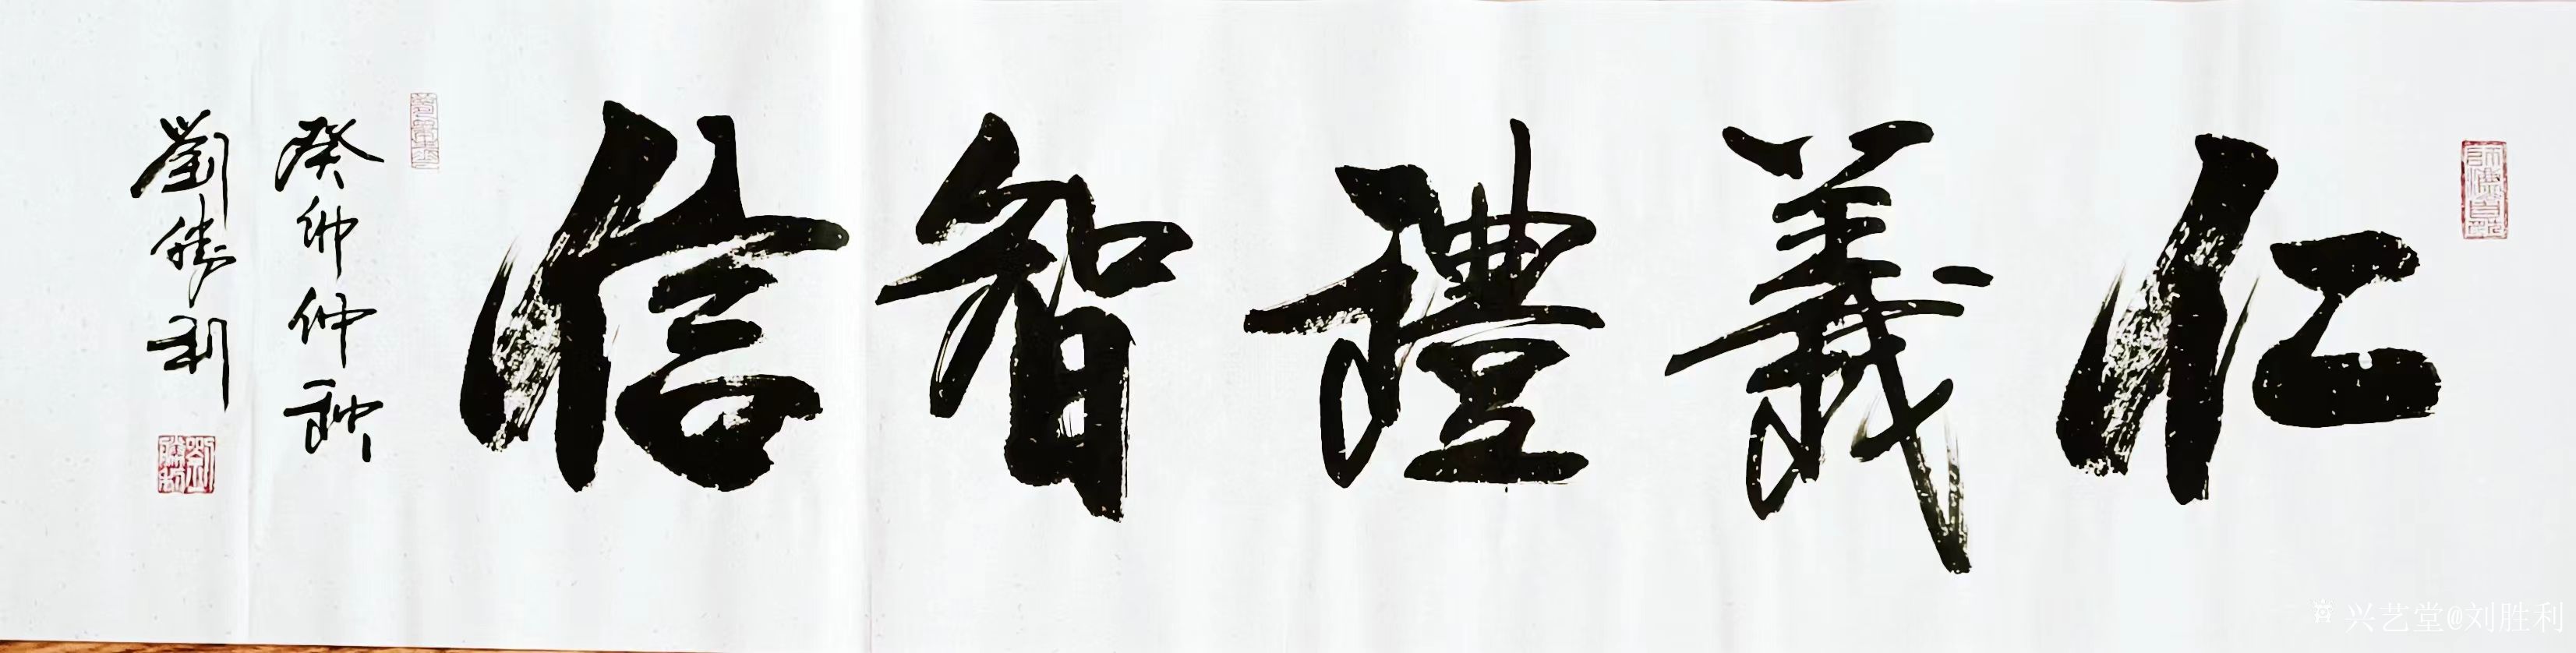 仁義禮智信
癸卯仲
劉勝利
劉勝利
兴艺堂@刘胜利